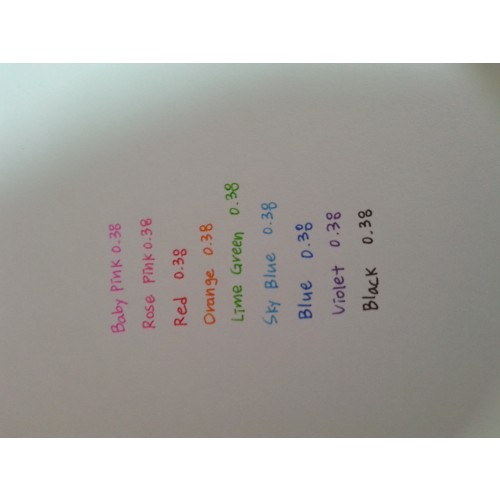 Baby Pink 0.38
Rose Pink 0.38
Red 0.38
Orange 0.38
Lime Green 0.38
Sky Blue 0.38
Blue 0.38
Violet 0.38
Black 0.38